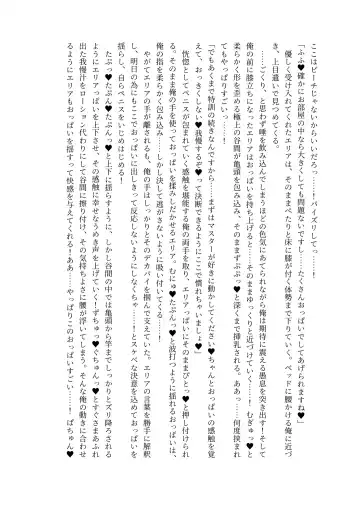 ここはビーチじゃないからいいだろっ……！パイズリして……！
「ふふ♥確かにお部屋の中なら大きくしても問題ないです！……たくさんおっぱいでしてあげられますね♥」
優しく受け入れてくれたエリアは、そのままぺたりと床に膝が付く体勢まで下りていく。ベッドに腰掛ける俺に近づき、上目遣いで見つめてくる。
……ごくり、と思わず唾を飲み込んでしまうほどの色気にあてられながら俺は期待に震える愚息を突き出す！そして俺の前に膝立ちになったエリアはおっぱいを持ち上げると……そのままゆっくりと近づけていく……！むぎゅっ♥と柔らかく形を歪める極上の谷間が亀頭を包み込み、そのままずぷっ♥と深くまで挿乳される。ああっ……何度挟まれてもやっぱりすごいっ……！
「でもあくまで特訓の続きなんですから……まずはマスターが好きに動かしてください♥ちゃんとおっぱいの感触を覚えて、おっきくしないぞ♥我慢するぞ♥って決断できるようにここで慣れちゃいましょ♥」
恍惚としてペニスが包まれていく感触を堪能する俺の両手を取り、エリアっぱいにそのままぴとっ♥と押し付けられる。そのまま俺の手を使っておっぱいを揉みしだかせるエリア。むにゅっ♥たぷんっ♥と波打つように揺れるおっぱいは、俺の指を柔らかく包み込み……しかし決して逃がさないように吸い付いてくる！
やがてエリアの手が離されるも、俺の手はしっかりとそのデカパイを掴んで支えていた。エリアの言葉を勝手に解釈し、明日の為にもここでおっぱいに出しきって反応しないようにしなくちゃ……！とスケベな決意を込めておっぱいを揺らし、自らペニスをいじめはじめる！
たぷっ♥たぷんっ♥たぷんっ♥と上下に揺らすように、しかし谷間の中では亀頭から竿までしっかりとズリ降ろされるようにエリアっぱいを上下させ、その感触に幸せなうめき声を上げていく！ずちゅっ♥ぐちゅんっ♥とすぐさまあふれ出た我慢汁をローション代わりにして谷間に擦り付け、その気持ちよさに腰が浮いてしまう！そんな俺の動きに合わせるようにエリアもおっぱいを揺すって快感を与えてくれる！ああ！……やっぱりこのおっぱいすごい……！ぱちゅんっ♥